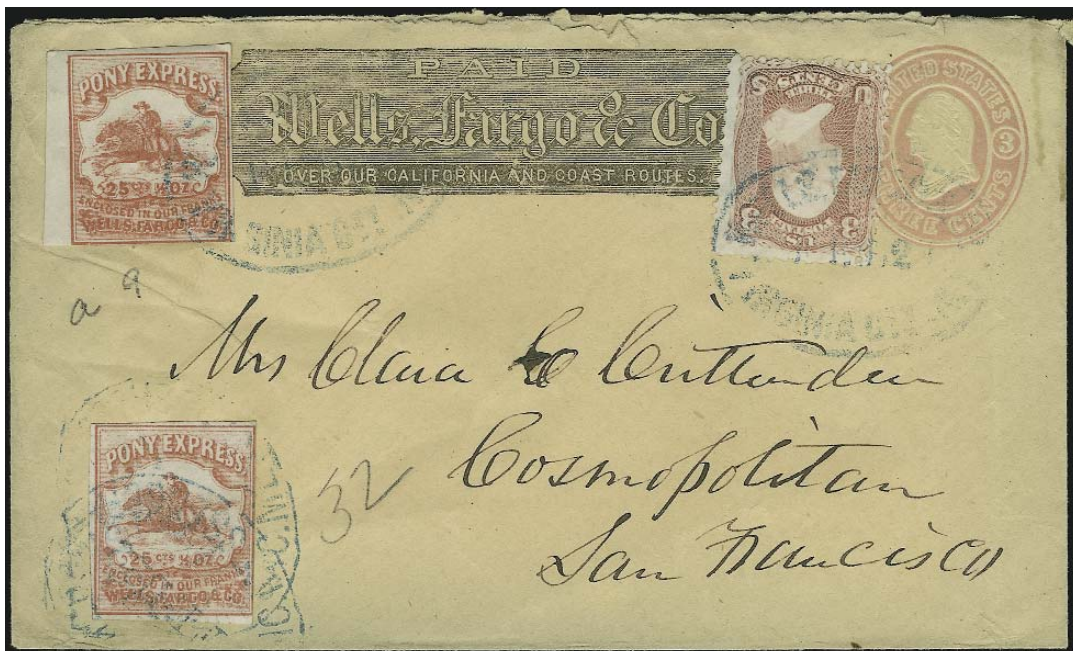 PONY EXPRESS
25 CTS ½ OZ
ENCLOSED IN OUR FRANKS
WELLS, FARGO & CO.
PAID
Wells, Fargo & Co
OVER OUR CALIFORNIA AND COAST ROUTES.
U S
THREE CENTS
U.S. POSTAGE
3 3
UNITED STATES
3
THREE CENTS
VIRGINIA CITY
VIRGINIA CITY
a 9
Mrs Clara C Crittenden
Cosmopolitan
San Francisco
32
PONY EXPRESS
25 CTS ½ OZ
ENCLOSED IN OUR FRANKS
WELLS, FARGO & CO.